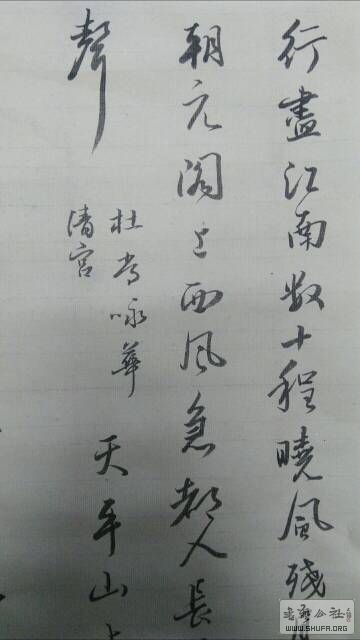 行盡江南数十程曉風殘
朝元閣上西風急都入長
聲
杜常咏華
清宮
天平山
書法公社
WWW.SHUFA.ORG